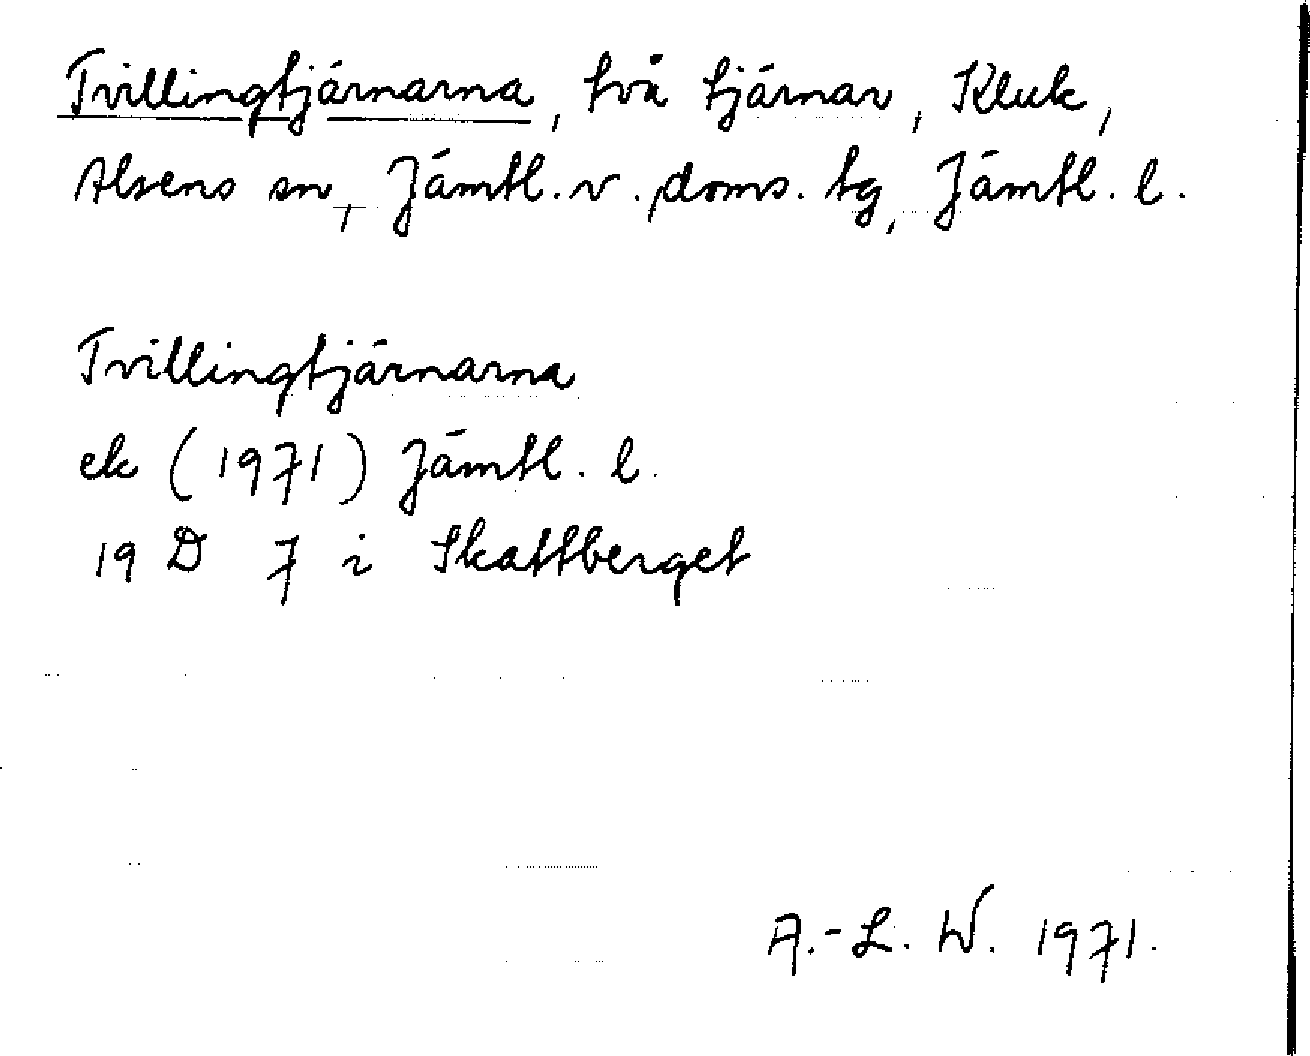 Tvillingtjärnarna, två tjärnar, Kluk,
Alsens sn, Jämtl. v. doms. tg, Jämtl. l.
Tvillingtjärnarna
ek (1971) Jämtl. l.
19 D 7 i Skattberget
A.-L. W. 1971.